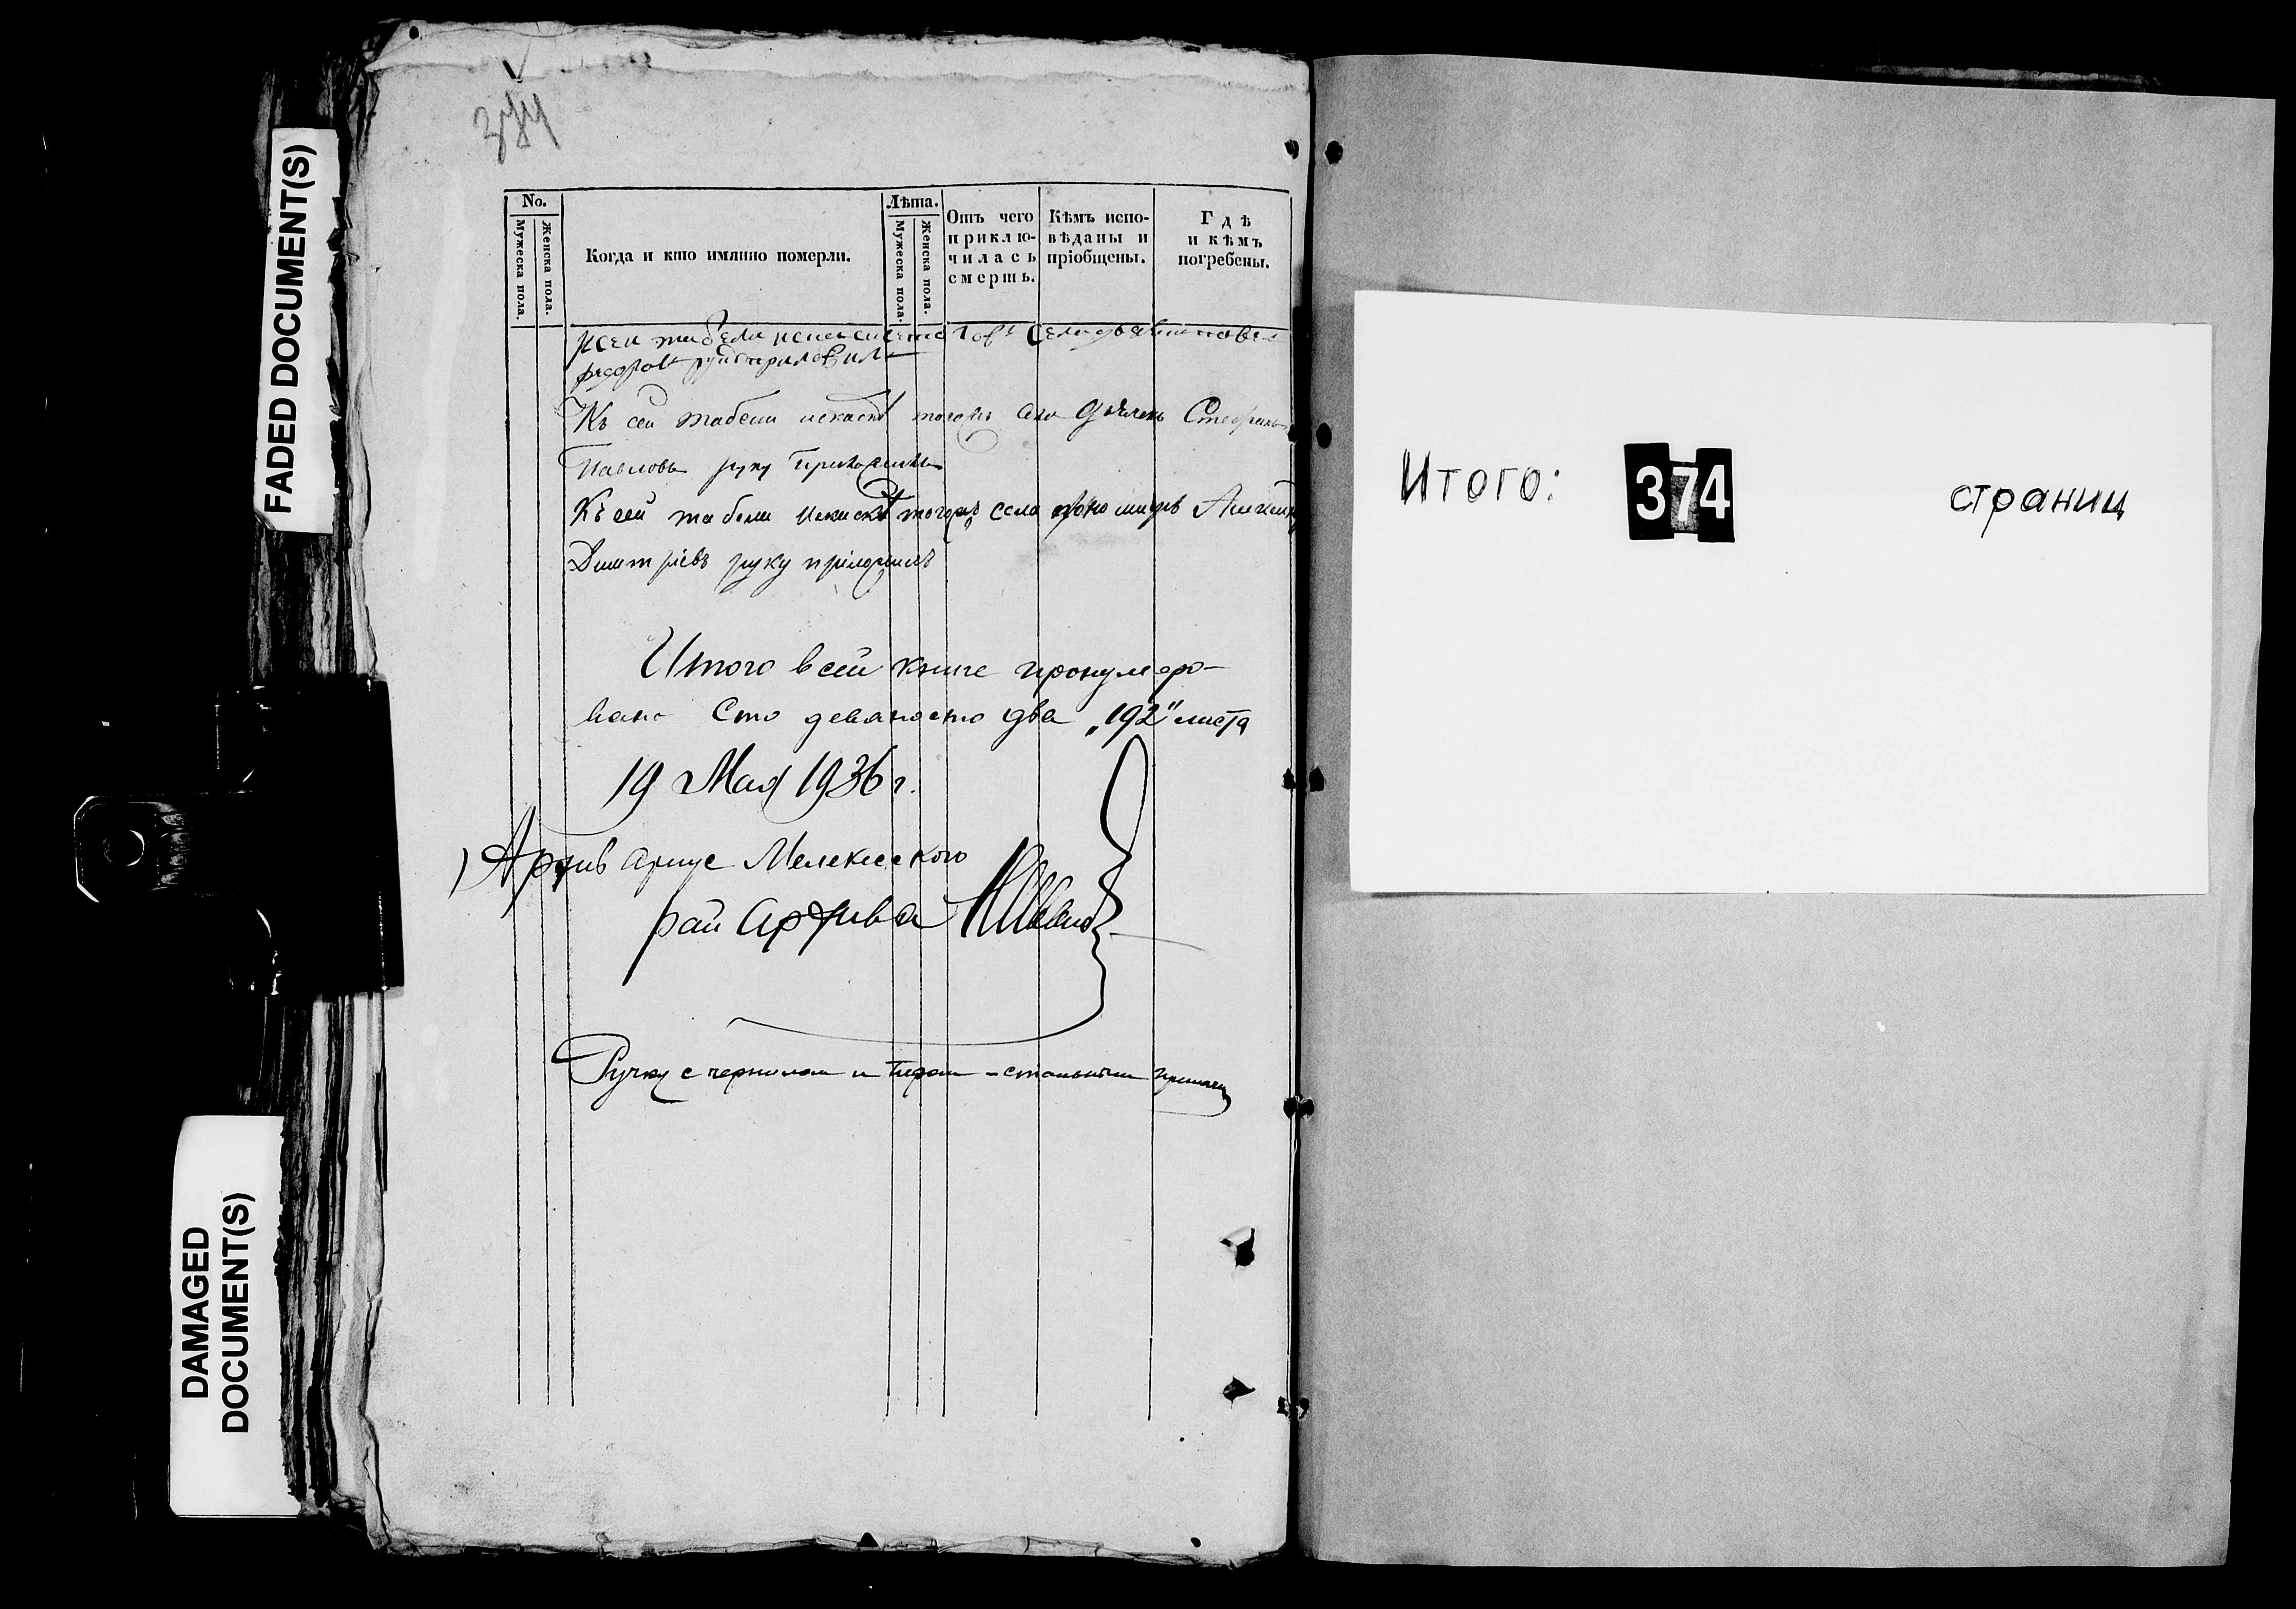 FADED DOCUMENT(S)
DAMAGED
DOCUMENT(S)
374
No.
Мужеска пола.
Женска пола.
Когда и кто имянно померли.
Лѣта.
Мужеска пола.
Женска пола.
Отъ чего
приклю-
чилась
смерть.
Кѣмъ испо-
вѣданы и
пріобщены.
Гдѣ
и кѣмъ
погребены.
Къ сей табели
Къ сей табели Стефанъ
Павловъ руку приложилъ
Къ сей табели тогожъ села пономарь
Димитріевъ руку приложилъ
Итого в сей книге пронумеро-
вано Сто девяносто два „192" листа
19 Мая 1936 г.
Архивариус Мелекесского
рай Архива
Ручку с чернилом и пером - стальным
Итого: 374 страниц